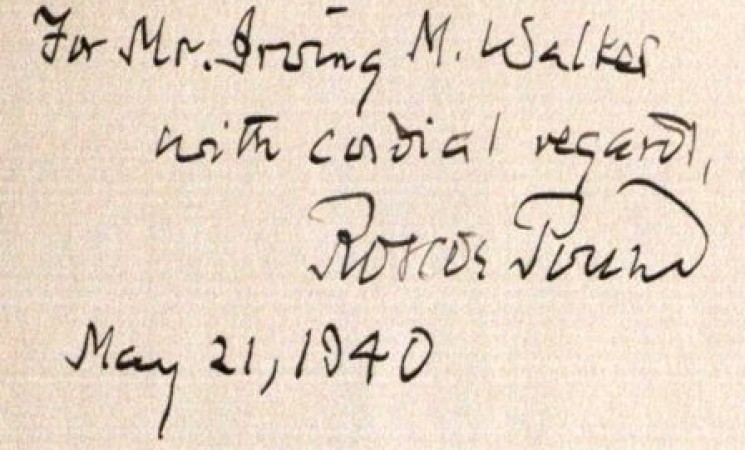 For Mr. Irving M. Walker
with cordial regards,
Roscoe Pound
May 21, 1940